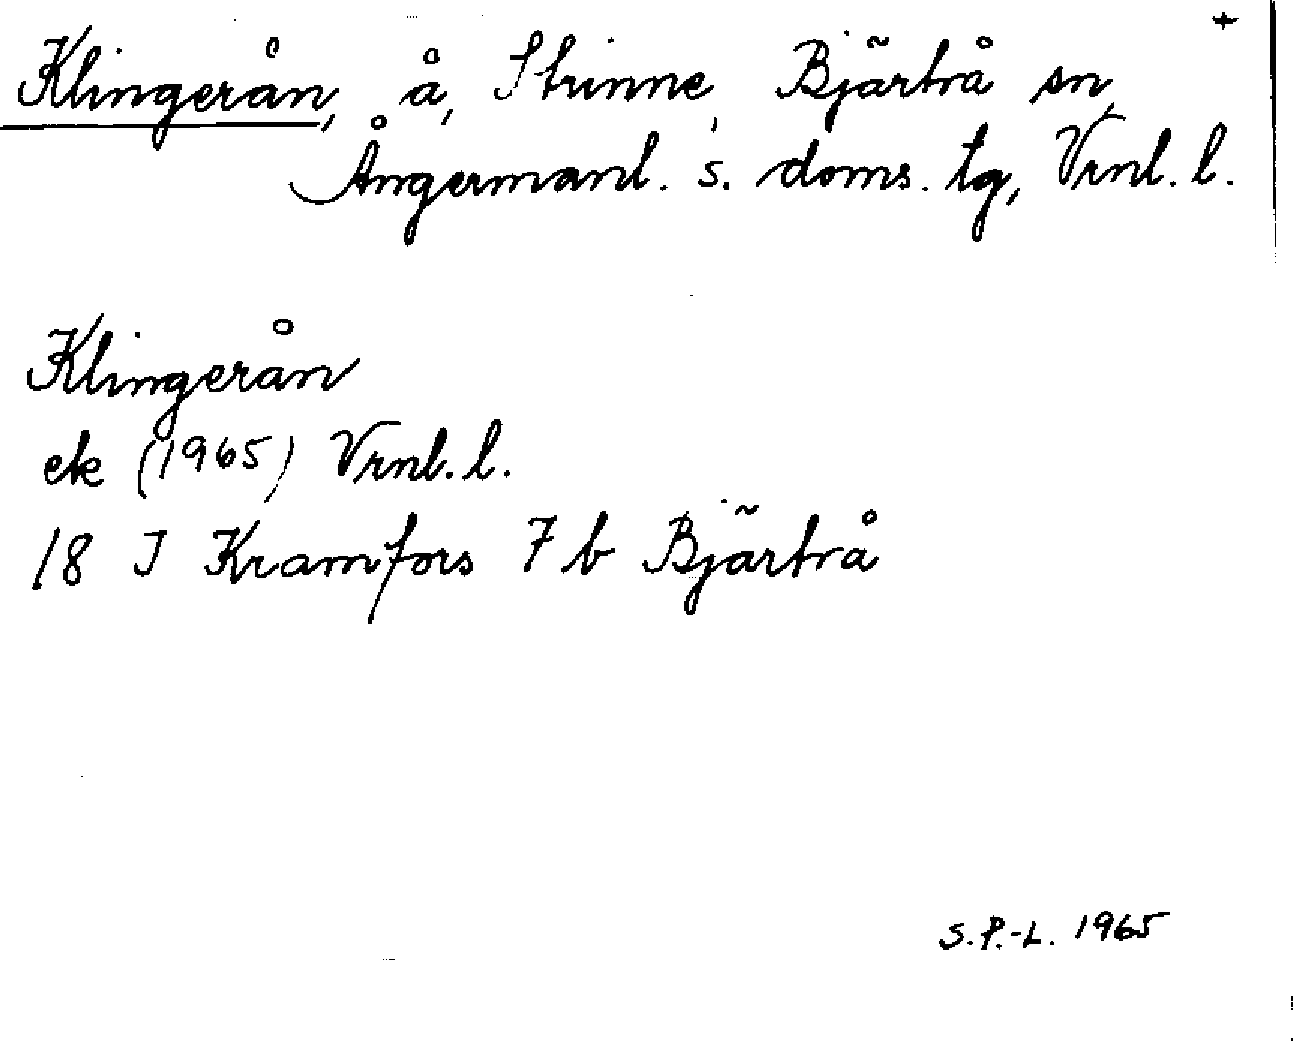 +
Klingerån, å, Strinne, Bjärtrå sn,
Ångermanl. s. doms. tg, Vrnl. l.
Klingerån
ek (1965) Vrnl. l.
18 I Kramfors 7 b Bjärtrå
S.P.-L. 1965